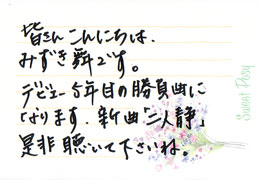 皆さんこんにちは、
みずき舞です。
デビュー5年目の勝負曲に
なります、新曲「二人静」
是非聴いて下さいね。
Sweet Posy